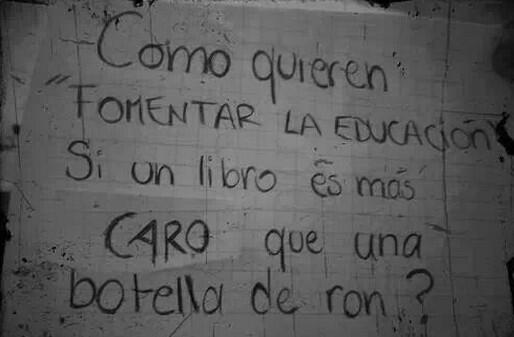 Como quieren
"FOMENTAR LA EDUCACIÓN"
Si un libro es más
CARO que una
botella de ron?